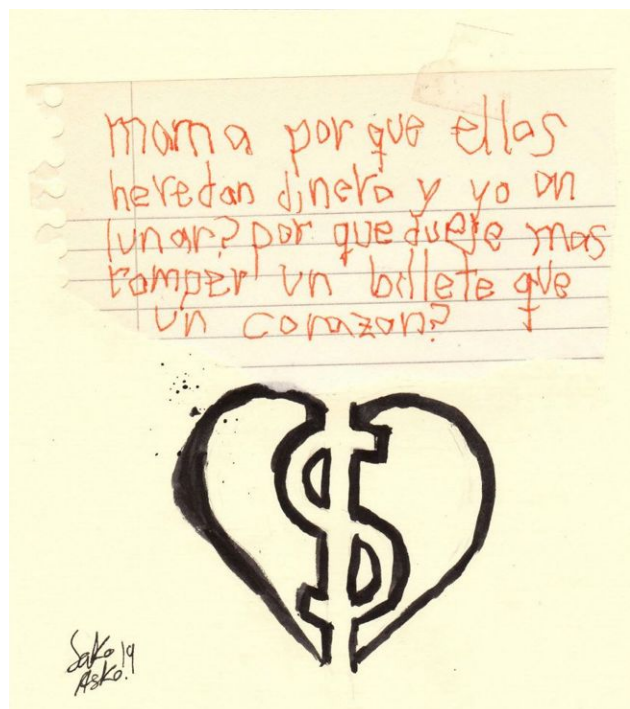 mama por que ellas
heredan dinero y yo un
lunar? por que duele mas
romper un billete que
un corazon?
$
Sako
Asko.19